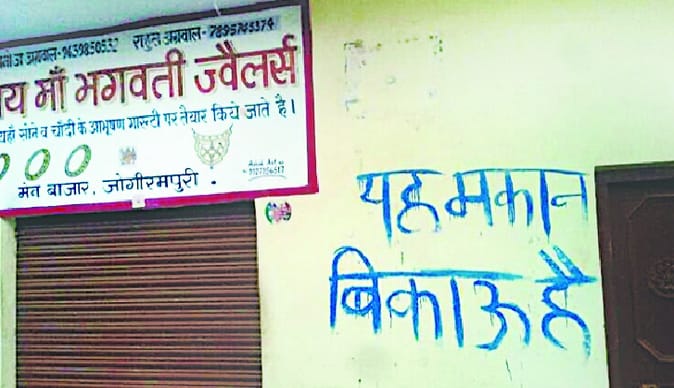 अग्रवाल-9639850532 राहुल अग्रवाल-7895745374
य माँ भगवती ज्वैलर्स
यहाँ सोने व चाँदी के आभूषण गारन्टी पर तैयार किये जाते है।
मेन बाजार, जोगीरमपुरी.
यह मकान
बिकाऊ है